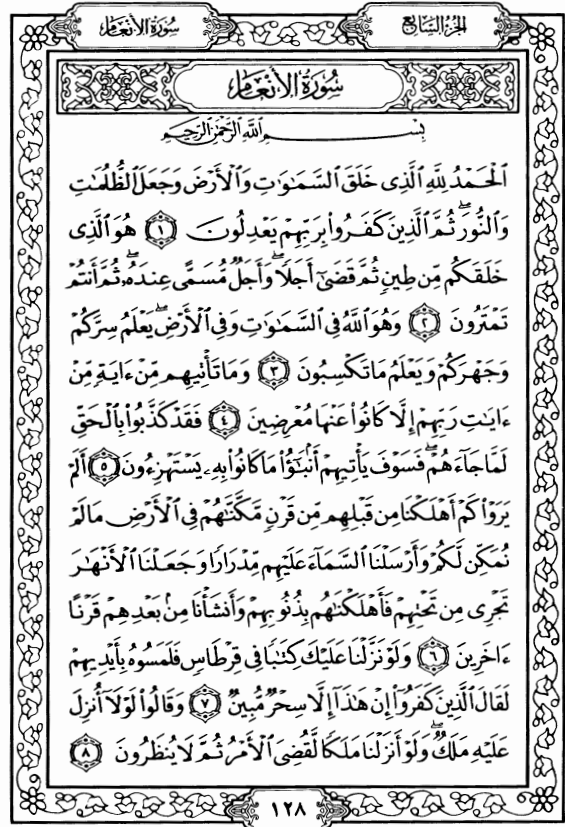 الجزء السابع
سورة الأنعام
سُورَةُ الأَنْعَام
بِسْمِ اللَّهِ الرَّحْمَٰنِ الرَّحِيمِ
ٱلْحَمْدُ لِلَّهِ ٱلَّذِى خَلَقَ ٱلسَّمَٰوَٰتِ وَٱلْأَرْضَ وَجَعَلَ ٱلظُّلُمَٰتِ
وَٱلنُّورَ ۖ ثُمَّ ٱلَّذِينَ كَفَرُوا۟ بِرَبِّهِمْ يَعْدِلُونَ ١ هُوَ ٱلَّذِى
خَلَقَكُم مِّن طِينٍ ثُمَّ قَضَىٰٓ أَجَلًا ۖ وَأَجَلٌ مُّسَمًّى عِندَهُۥ ۖ ثُمَّ أَنتُمْ
تَمْتَرُونَ ٢ وَهُوَ ٱللَّهُ فِى ٱلسَّمَٰوَٰتِ وَفِى ٱلْأَرْضِ ۖ يَعْلَمُ سِرَّكُمْ
وَجَهْرَكُمْ وَيَعْلَمُ مَا تَكْسِبُونَ ٣ وَمَا تَأْتِيهِم مِّنْ ءَايَةٍ مِّنْ
ءَايَٰتِ رَبِّهِمْ إِلَّا كَانُوا۟ عَنْهَا مُعْرِضِينَ ٤ فَقَدْ كَذَّبُوا۟ بِٱلْحَقِّ
لَمَّا جَآءَهُمْ ۖ فَسَوْفَ يَأْتِيهِمْ أَنۢبَٰٓؤُا۟ مَا كَانُوا۟ بِهِۦ يَسْتَهْزِءُونَ ٥ أَلَمْ
يَرَوْا۟ كَمْ أَهْلَكْنَا مِن قَبْلِهِم مِّن قَرْنٍ مَّكَّنَّٰهُمْ فِى ٱلْأَرْضِ مَا لَمْ
نُمَكِّن لَّكُمْ وَأَرْسَلْنَا ٱلسَّمَآءَ عَلَيْهِم مِّدْرَارًا وَجَعَلْنَا ٱلْأَنْهَٰرَ
تَجْرِى مِن تَحْتِهِمْ فَأَهْلَكْنَٰهُم بِذُنُوبِهِمْ وَأَنشَأْنَا مِنۢ بَعْدِهِمْ قَرْنًا
ءَاخَرِينَ ٦ وَلَوْ نَزَّلْنَا عَلَيْكَ كِتَٰبًا فِى قِرْطَاسٍ فَلَمَسُوهُ بِأَيْدِيهِمْ
لَقَالَ ٱلَّذِينَ كَفَرُوٓا۟ إِنْ هَٰذَآ إِلَّا سِحْرٌ مُّبِينٌ ٧ وَقَالُوا۟ لَوْلَآ أُنزِلَ
عَلَيْهِ مَلَكٌ ۖ وَلَوْ أَنزَلْنَا مَلَكًا لَّقُضِىَ ٱلْأَمْرُ ثُمَّ لَا يُنظَرُونَ ٨
١٢٨